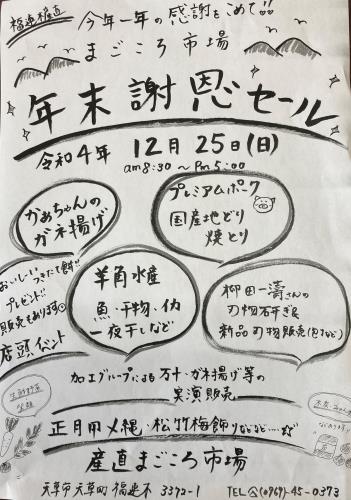 福連木産直
今年一年の感謝をこめて!!
まごころ市場
年末謝恩セール
令和4年 12月25日(日)
am 8:30 ~ Pm 5:00
かあちゃんの
ガネ揚げ
プレミアムポーク
国産地どり
焼とり
おいしいつきたて餅!!
プレゼント!!
販売もあります
店頭イベント
羊角水産
魚・干物・イカ
一夜干しなど
柳田一濤さんの
刃物研ぎ&
新品刃物販売(包丁など)
加工グループによる 万十・ガネ揚げ等の
実演販売
生鮮野菜
正月用〆縄・松竹梅飾りなどなど…
産直まごころ市場
天草市天草町福連木 3372-1 TEL (0969)-45-0373